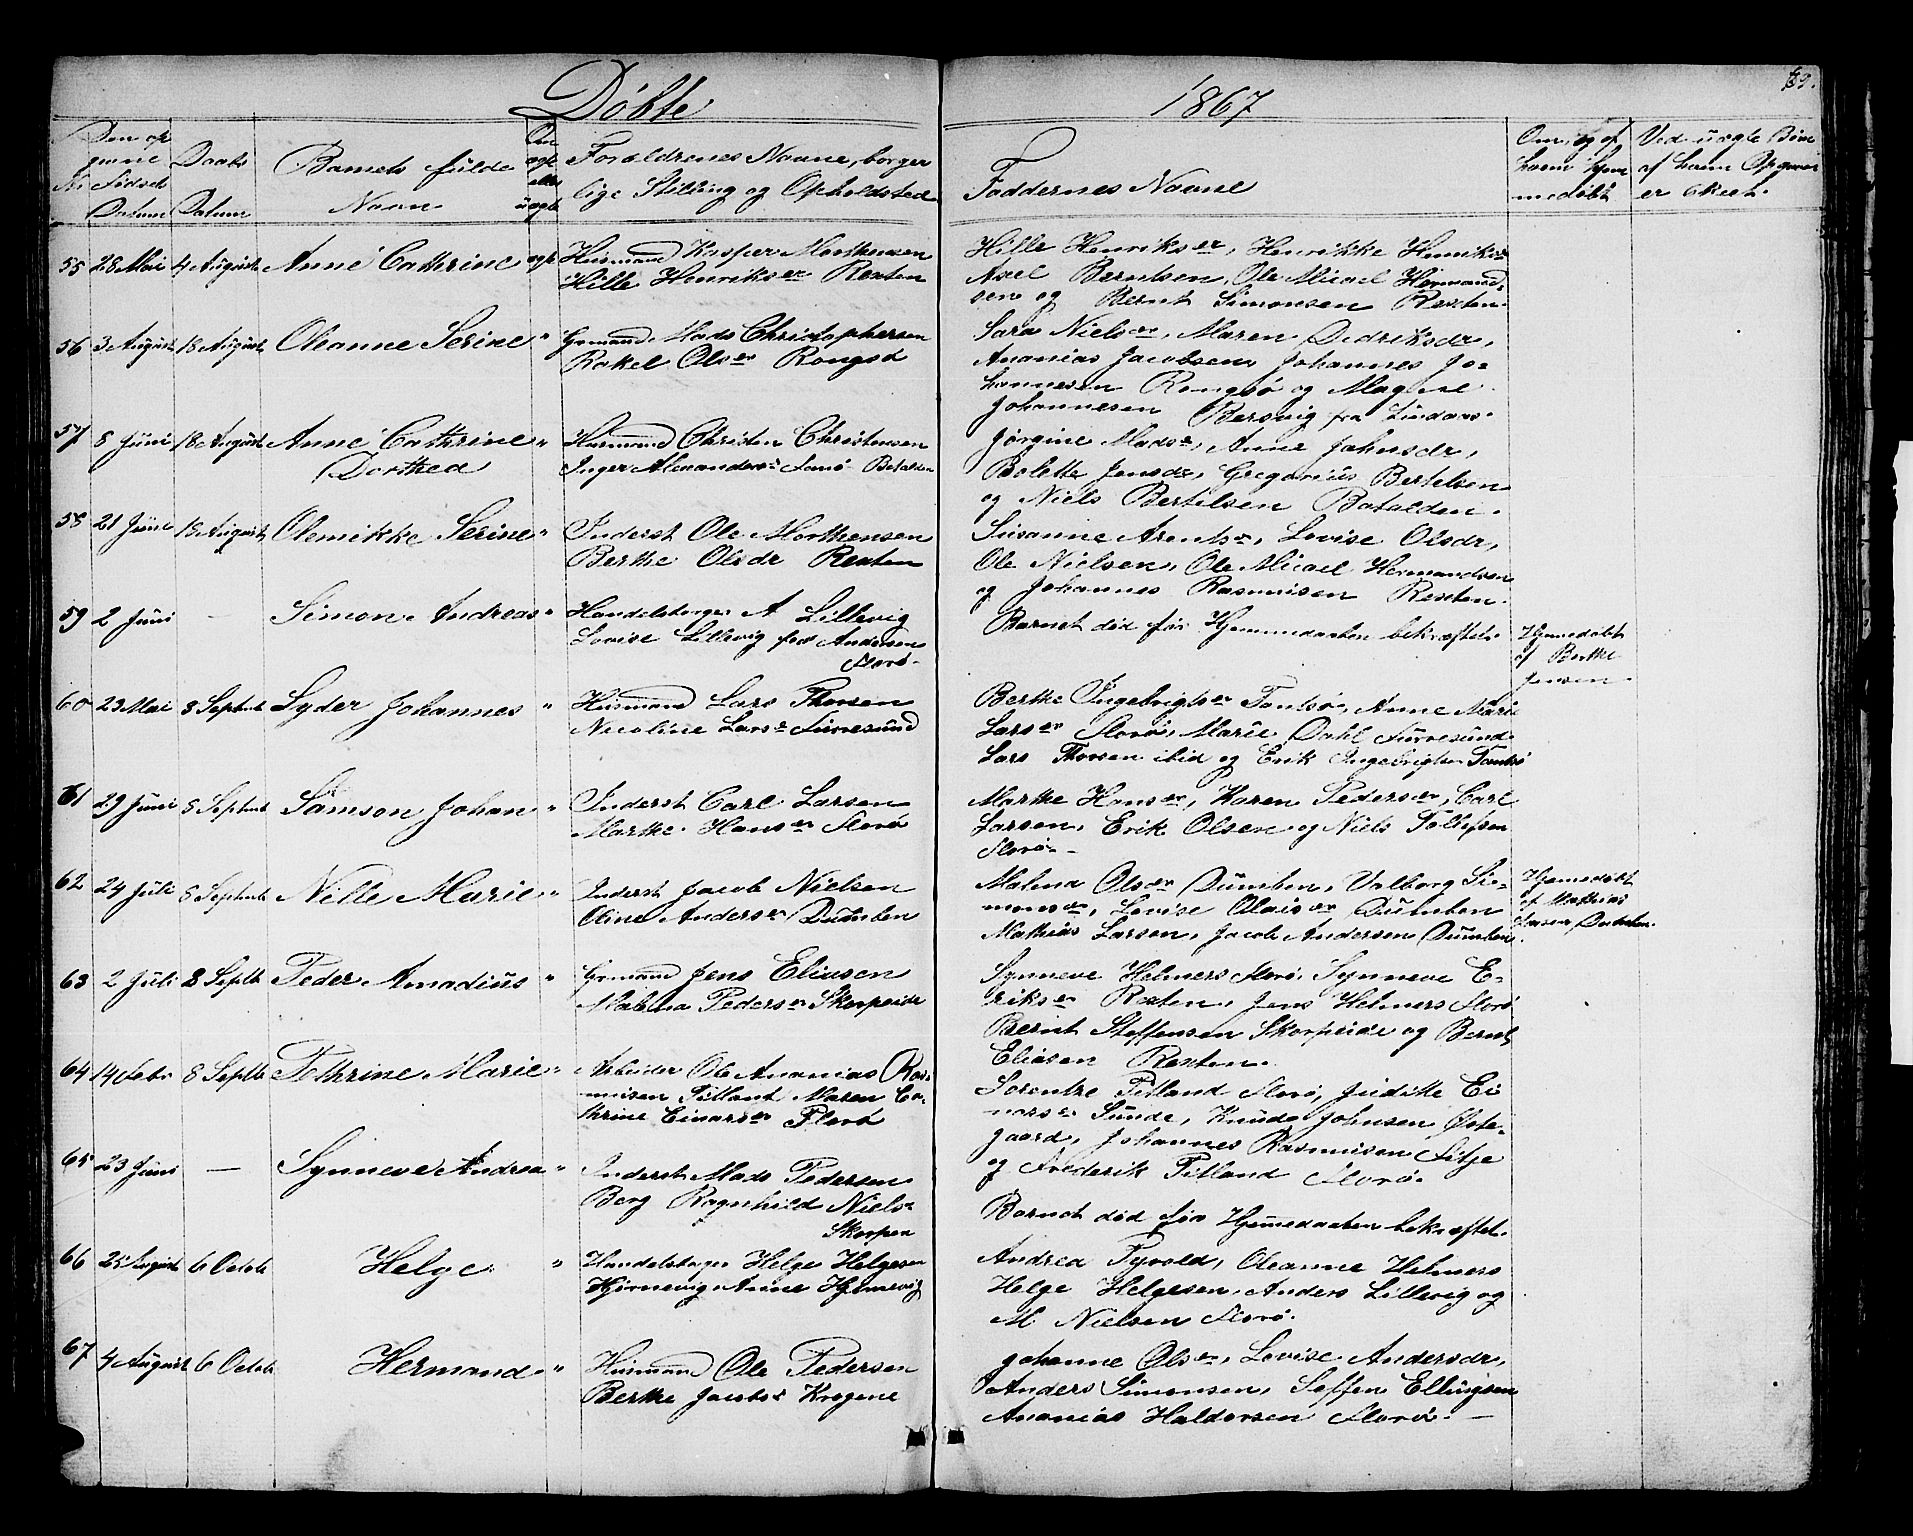 Døbte
1867
Den op
givne
No Fødsels
Datum
Daabs
Datum
Barnets fulde
Navn
Om
ægte
eller
uægte
Forældrenes Navne, borger
lige Stilling og Opholdsted
Faddernes Navne
Om, og af
hvem hjem
medøbt
Ved uægte Børn
af hvem Opgaven
er skeet.
55 28 Mai 4 August Anne Cathrine ægte Husmand Kasper Morthensen
Hille Henriksdr Rexten
Hille Henriksdr, Henrikke Henriksdr
Axel Berntsen, Ole Micael Hermand-
sen og Bernt Simonsen Rexten.
56 3 August 18 August Oleanne Serine " Grmand Mads Christophersen
Rakel Olsdr Rongsø
Sara Nielsdr, Maren Didriksdr,
Ananias Jacobsen, Johannes Jo-
hannesen Rongsø og Magne
Johannesen Barsvig fra Lindaas.
57 8 Juni 18 August Anne Cathrine " Husmand Christen Christensen
Dorthea
Inger Alexandersdr Sanø Batalden
Jørgine Madsdr, Anne Johnsdr,
Bolette Jensdr, Gregorius Bertelsen
og Niels Bertilsen Batalden.
58 21 Juni 18 August Olemikke Serine " Inderst Ole Morthensen
Berthe Olsdr Rexten
Susanne Arentsdr, Lovise Olsdr,
Ole Nielsen, Ole Micael Hermandsen
og Johannes Rasmusen Rexten.
59 2 Juni — Simon Andreas " Handelsborger A Lillevig
Lovise Lillevig fød Andersen
Florø
Barnet død før Hjemmedaaben bekræftet.
Hjemedøbt
af Berthe
Jensen
60 23 Mai 8 Septbr Syder Johannes " Husmand Lars Thorsen
Nicoline Larsdr Furresund
Berthe Ingebrigtsdr Tansø, Anne Marie
Larsdr Florø, Marie Dahl Furresund
Lars Thorsen ibid og Erik Ingebrigtsen Tansø
61 29 Juni 8 Septbr Samson Johan " Inderst Carl Larsen
Marthe Hansdr Florø
Marthe Hansdr, Karen Pedersdr, Carl
Larsen, Erik Olsen og Niels Tollefsen
Florø.
62 24 Juli 8 Septbr Nille Marie " Inderst Jacob Nielsen
Oline Andersdr Dumben
Malena Olsdr Dumben, Valborg Si-
monsdr, Lovise Olaisdr Dumben
Mathias Larsen, Jacob Andersen Dumben
Hjemedøbt
af Mathias
Larsen Dumben.
63 2 Juli 8 Septb Peder Amadius " Grmand Jens Eliasen
Malena Pedersdr Skorpeide
Synneve Helmers Florø, Synneve E-
riksdr Rexten, Jens Helmers Florø
Bernt Steffensen Skorpeide og Bernt
Eliasen Rexten.
64 14 Febr 8 Septb Tethrine Marie " Arbeider Ole Ananias Ras-
musen Titland Maren Ca-
thrine Einarsdr Florø
Sorenthe Titland Florø, Judithe Ei
narsdr Sunde, Knud Johnsen Øste-
gaard, Johannes Rasmusen Sitje
og Frederik Titland Florø.
65 23 Juni — Synneve Andrea " Inderst Mads Pedersen
Berg Ragnhild Nielsdr
Skorpen
Barnet død før Hjemedaaben bekræftet.
66 25 August 6 Octob Helge " Handelsborger Helge Helgesen
Hjørnevig Anne Hjørnevig
Andrea Tyvold, Oleanne Helmers
Helge Helgesen, Anders Lillevig og
M Nielsen Florø.
67 4 August 6 Octob Hermand " Husmand Ole Pedersen
Berthe Jacobsdr Krogene
Johanne Olsdr, Lovise Andersdr,
Anders Simonsen, Seffen Ellingsen
Ananias Haldorsen Florø. —